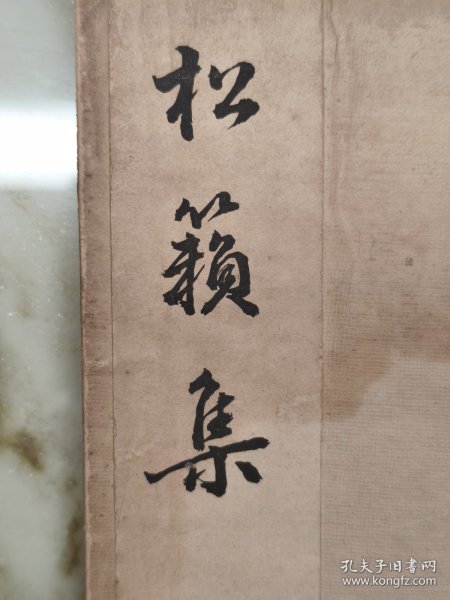 松籟集
孔夫子旧书网
www.kongfz.com